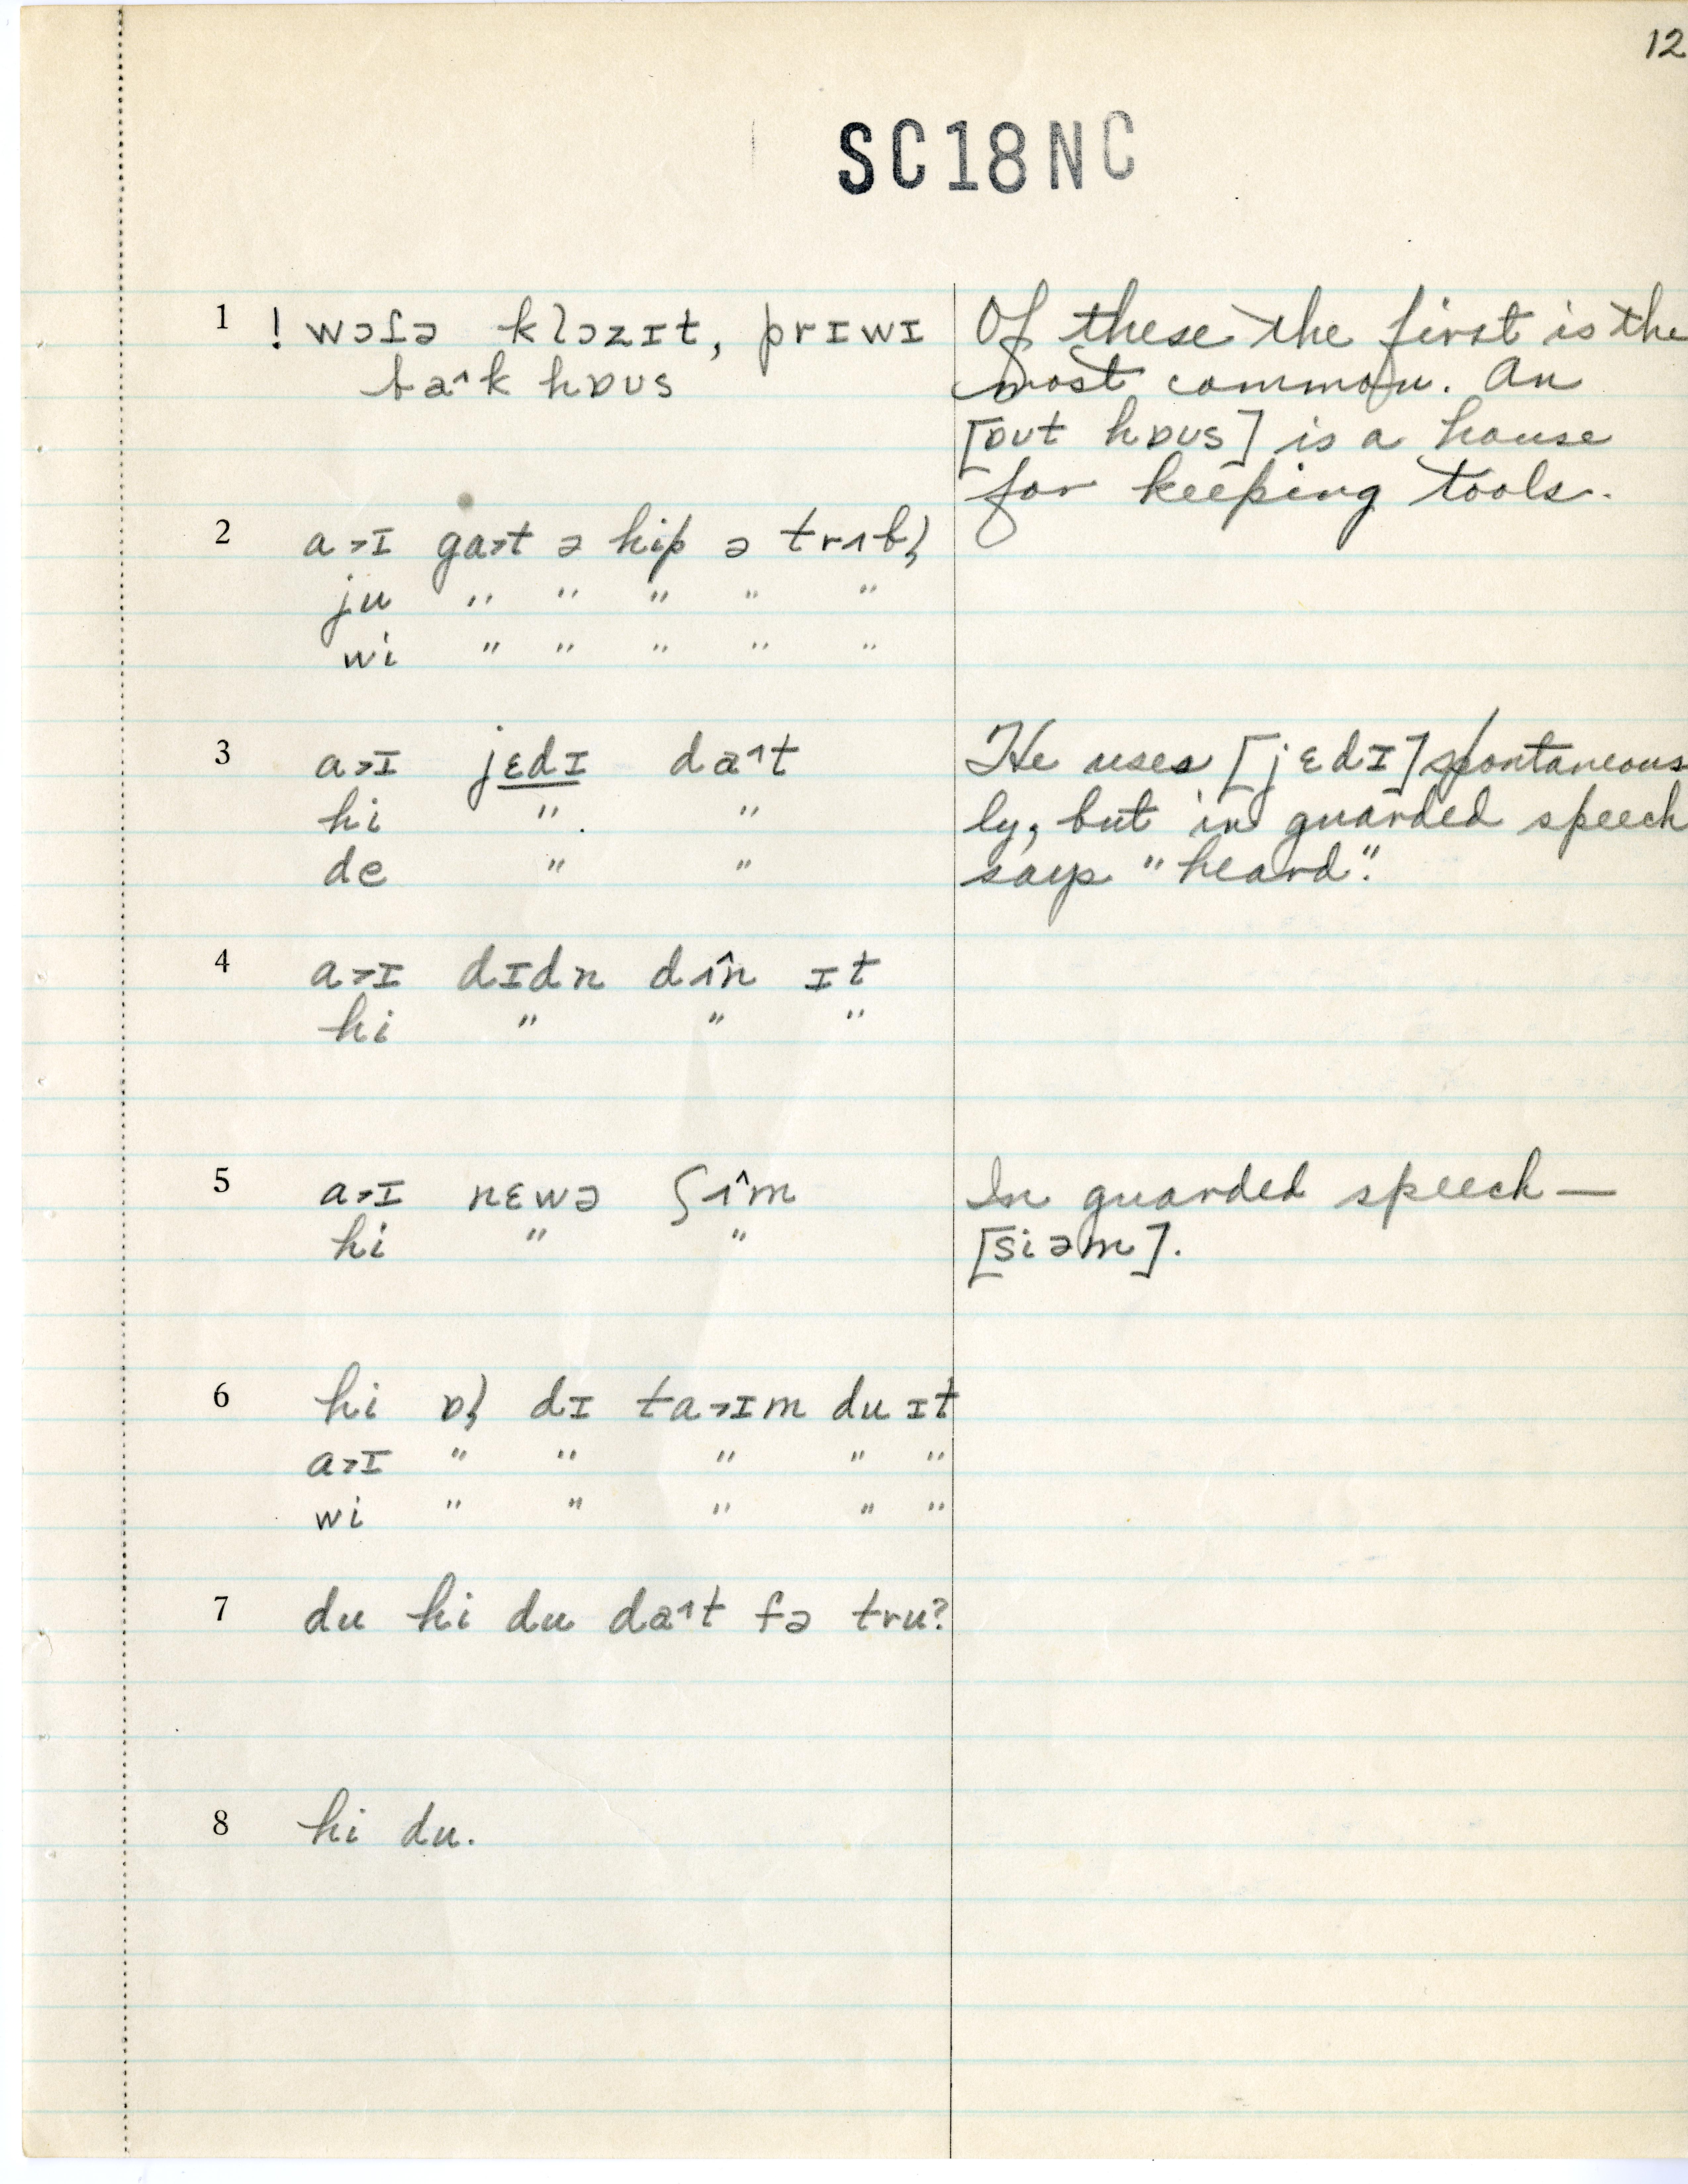 12
SC18NC
1 ! wɔʃə klɔzɪt, prɪwɪ
ba^k hɒʊs
Of these the first is the
most common. An
[ɒʊt hɒʊs] is a house
for keeping tools.
2 a˃ɪ ga˃t ə hip ə trʌbl̩
ju " " " " "
wi " " " " "
3 a˃ɪ jɛdɪ da^t
hi " "
de " "
He uses [jɛdɪ] spontaneous
ly, but in guarded speech
says "heard".
4 a˃ɪ dɪdn dʌ̂n ɪt
hi " " "
5 a˃ɪ nɛwə ʃʌ̂m
hi " "
In guarded speech—
[siəm].
6 hi ɒl̩ dɪ ta˃ɪm du ɪt
a˃ɪ " " " " "
wi " " " " "
7 du hi du da^t fə tru?
8 hi du.